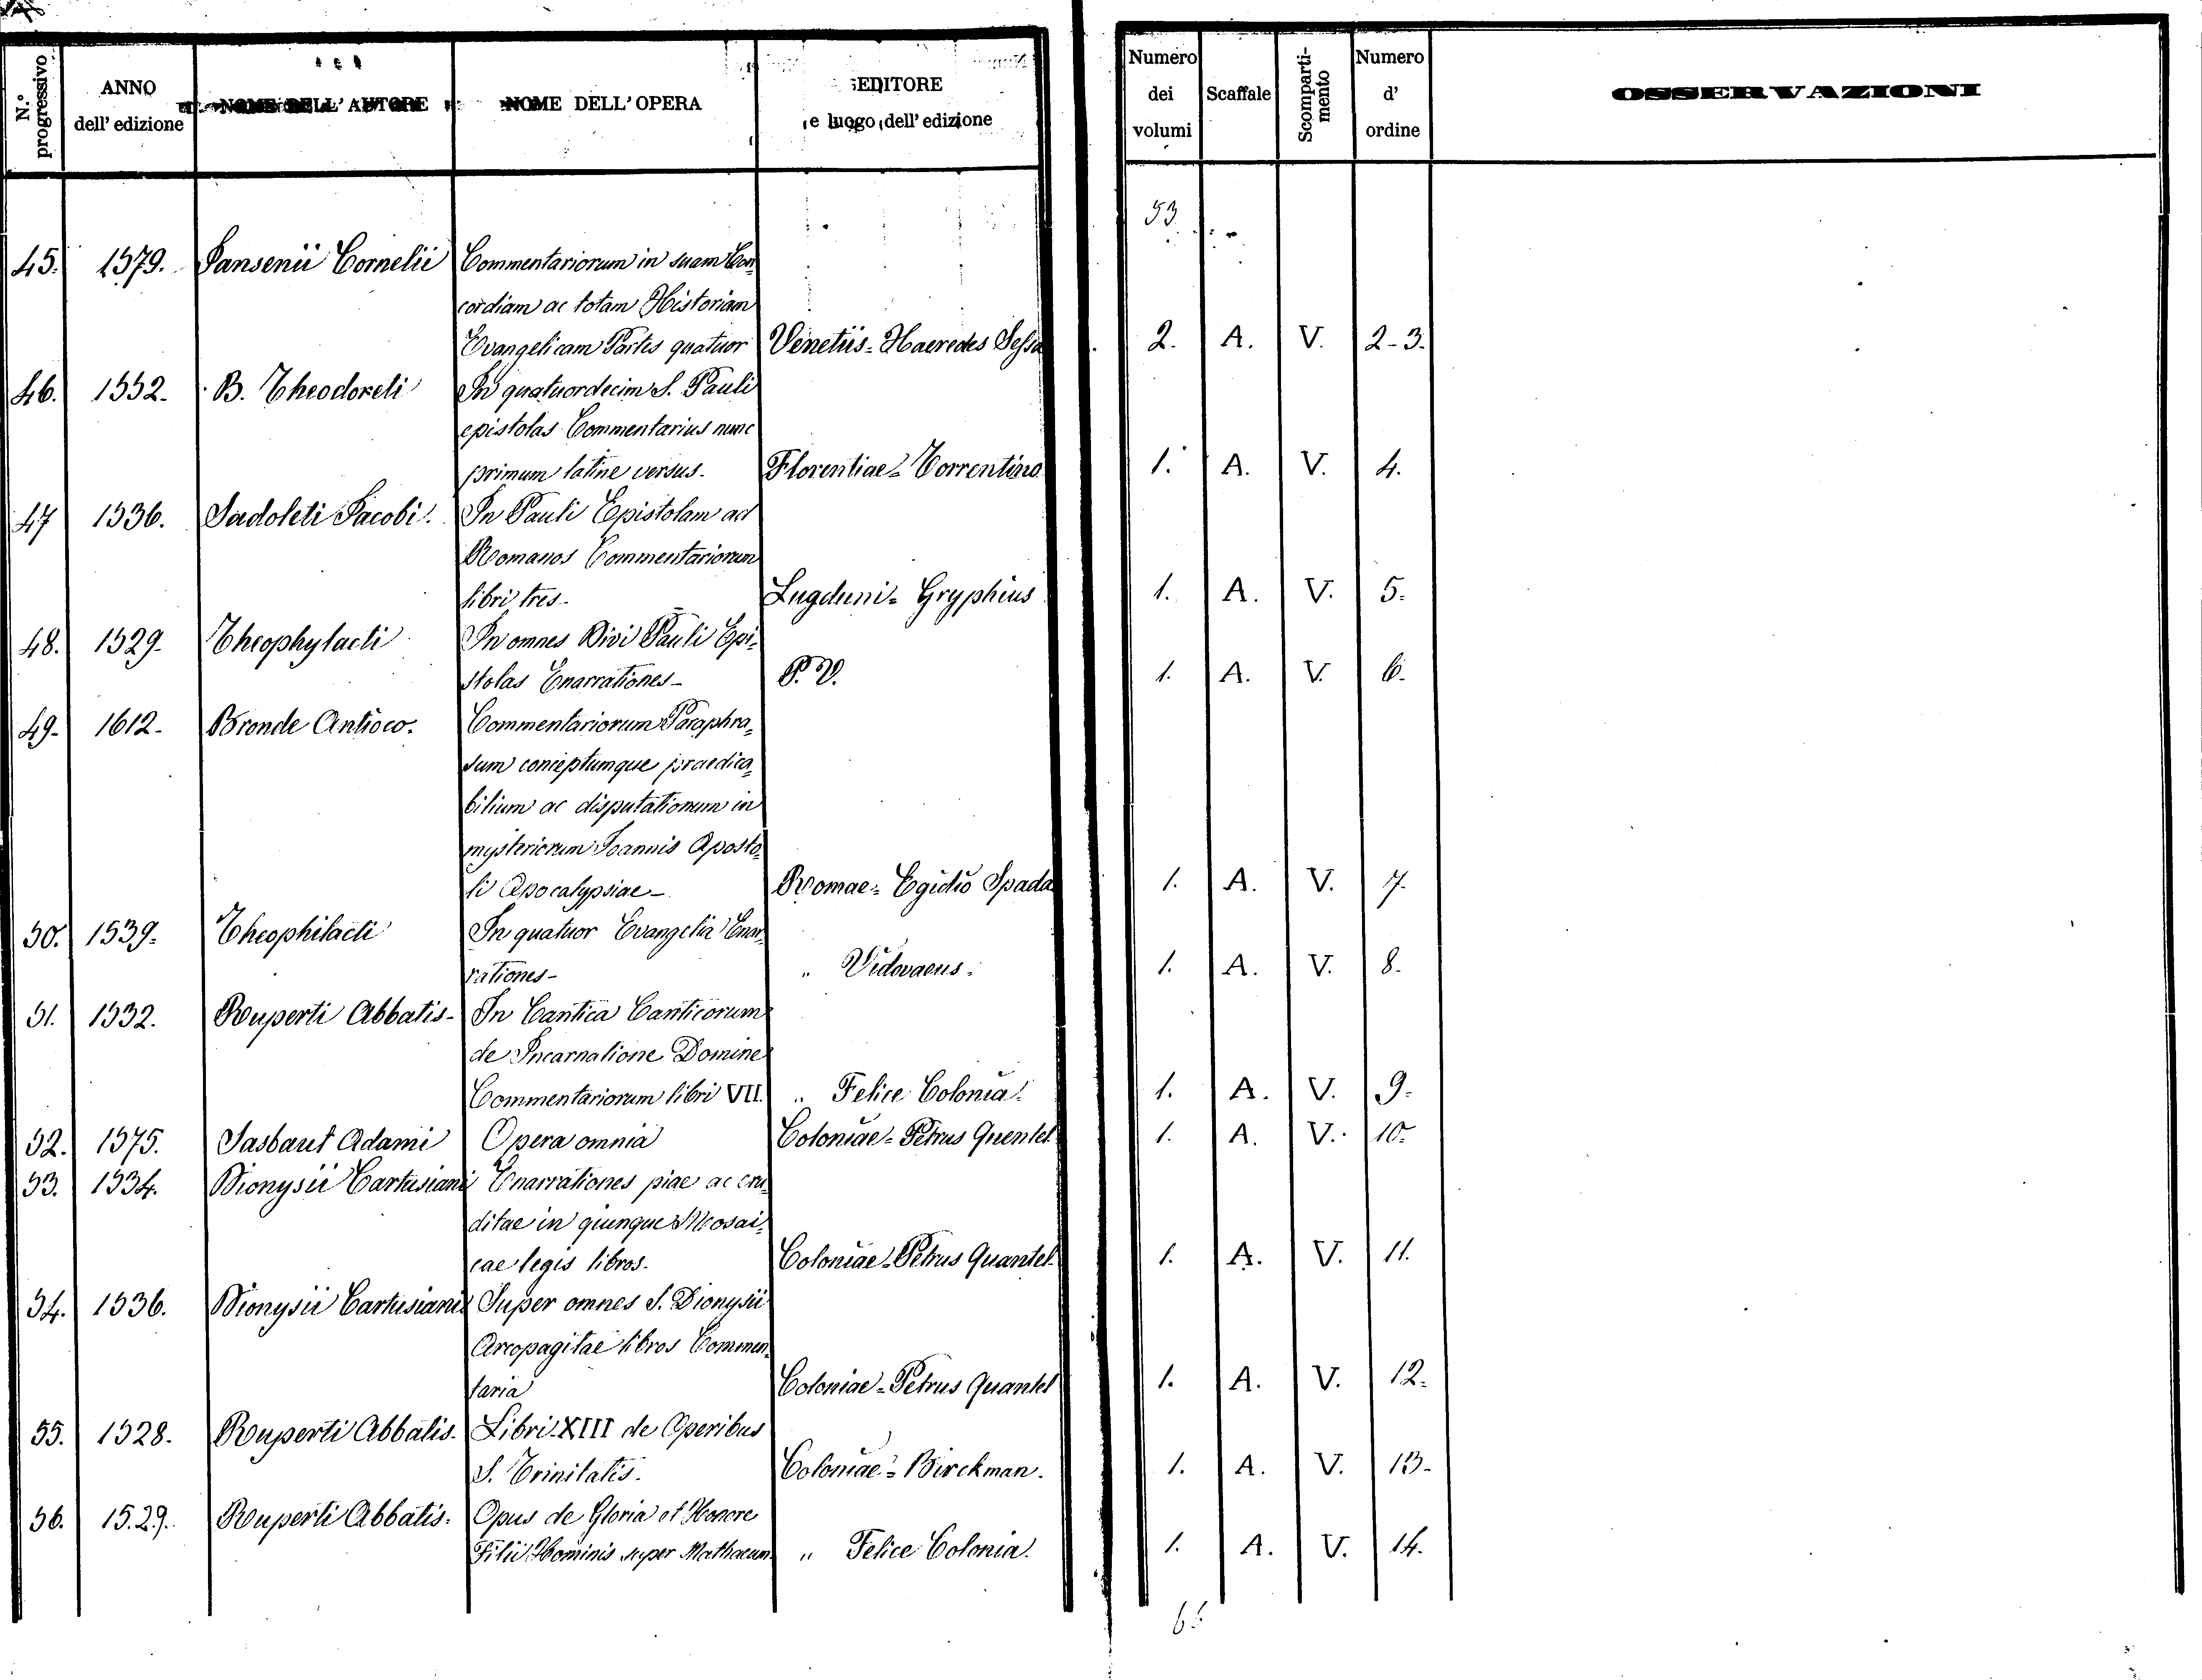 N.° progressivo
ANNO dell' edizione
NOME DELL' AUTORE
NOME DELL' OPERA
EDITORE e luogo dell' edizione
Numero dei volumi
Scaffale
Scomparti-mento
Numero d' ordine
OSSERVAZIONI
53
45. 1579. Jansenii Cornelii Commentariorum in suam Con-
cordiam ac totam Historiam
Evangelicam Partes quatuor Venetiis = Haeredes Sessa 2. A. V. 2-3.
46. 1552. B. Theodoreti In quatuordecim S. Pauli
epistolas Commentarius nunc
primum latine versus. Florentiae = Torrentino 1. A. V. 4.
47 1536. Sadoleti Jacobi. In Pauli Epistolam ad
Romanos Commentariorum
libri tres. Lugduni = Gryphius 1. A. V. 5.
48. 1529. Theophylacti In omnes Divi Pauli Epi=
stolas Enarrationes 1. A. V. 6.
49. 1612. Bronde Antioco. Commentariorum Paraphra=
sum conceptumque praedica=
bilium ac disputationum in
mysteriorum Joannis Aposto=
li Apocalypsiae Romae = Egidio Spada 1. A. V. 7.
50. 1539. Theophilacti In quatuor Evangelia Enar=
rationes " Vidovaeus. 1. A. V. 8.
51. 1532. Ruperti Abbatis In Cantica Canticorum
de Incarnatione Domine
Commentariorum libri VII. " Felice Colonia. 1. A. V. 9.
52. 1575. Sasbaut Adami Opera omnia Coloniae = Petrus Quentel. 1. A. V. 10.
53. 1534. Dionysii Cartusiani Enarrationes piae ac eru=
ditae in quinque Mosai=
cae legis libros. Coloniae = Petrus Quantel. 1. A. V. 11.
54. 1536. Dionysii Cartusiani Super omnes S. Dionysii
Areopagitae libros Commen=
taria Coloniae = Petrus Quantel 1. A. V. 12.
55. 1528. Ruperti Abbatis. Libri XIII de Operibus
S. Trinitatis. Coloniae = Birckman. 1. A. V. 13.
56. 1529. Ruperti Abbatis. Opus de Gloria et Honore
Filii Hominis super Mathaeum " Felice Colonia. 1. A. V. 14.